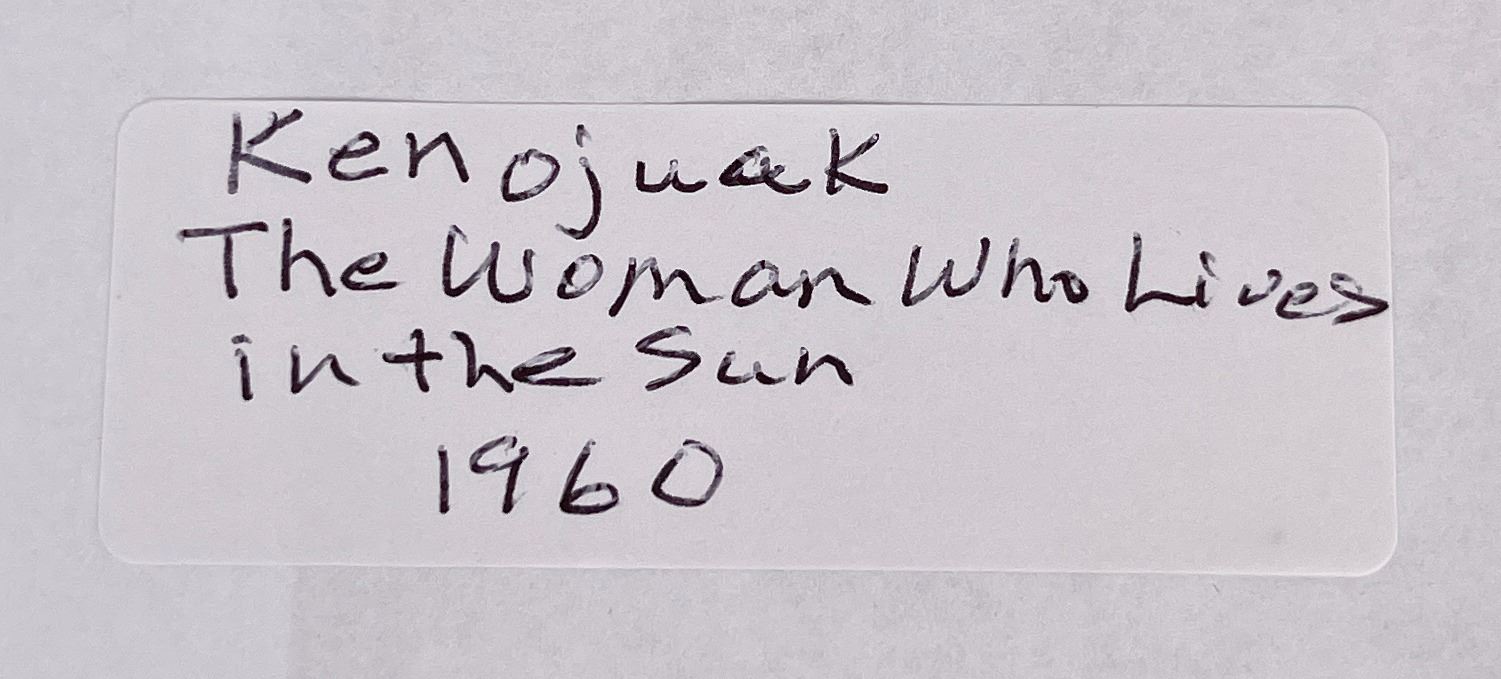 Kenojuak
The Woman Who Lives
in the Sun
1960